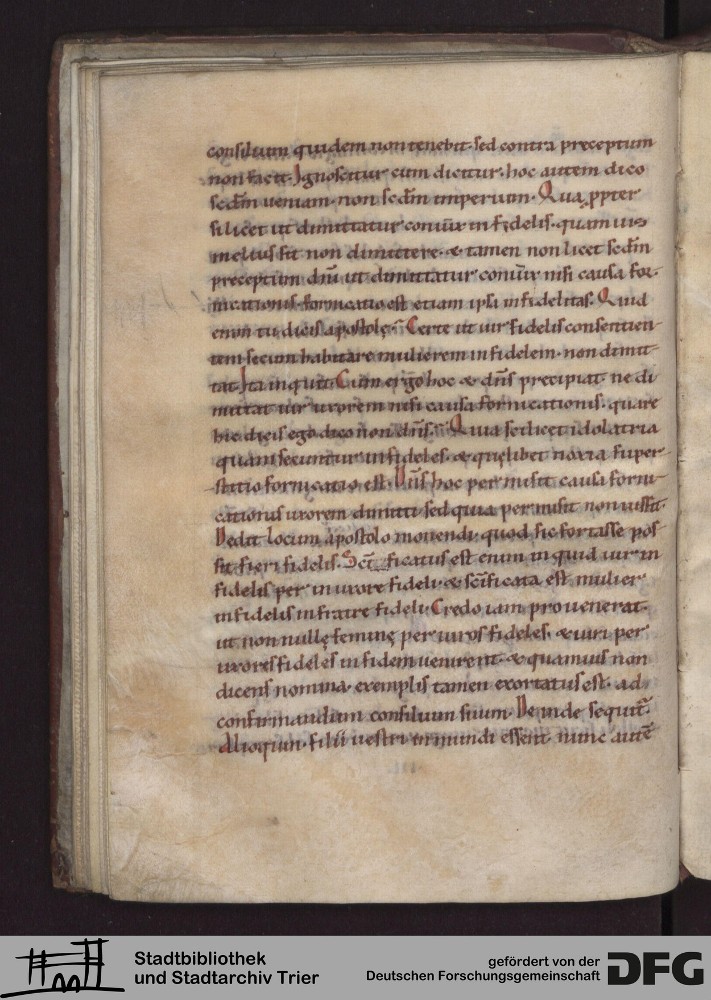 consilium quidem non tenebit· sed contra preceptum
non facit· Ignoscitur cum dicitur· hoc autem dico
secdm ueniam· non secdm imperium· Qua ppter
si licet ut dimittatur coniūx infidelis· quamuis
melius sit non dimittere· & tamen non licet secdm
preceptum dnī ut dimittatur coniūx nisi causa for
nicationis· fornicatio est etiam ipsa infidelitas· Quid
enim tu dicis apostole· Certe ut uir fidelis consentien
tem secum habitare mulierem infidelem· non dimit
tat· Ita inquit· Cum ergo hoc & dns precipiat· ne di
mittat uir uxorem nisi causa fornicationis· quare
hic dicis ego dico non dns· Quia scilicet idolatria
quam secuntur infideles· & quelibet noxia super
stitio fornicatio est· Dns hoc permisit causa forni
cationis uxorem dimitti sed quia permisit non iussit·
Dedit locum apostolo monendi· quod sic fortasse pos
sit fieri fidelis· Scī ficatus est enim inquid uir in
fidelis per in uxore fideli· & scificata est mulier
infidelis in fratre fideli· Credo iam prouenerat·
ut non nullę feminę per uiros fideles· & uiri per
uxores fideles in fidem uenirent· & quamuis non
dicens nomina· exemplis tamen exortatus est· ad
confirmandum consilium suum· Deinde sequit̄·
Alioquin· filii uestri inmundi essent· nunc autē
Stadtbibliothek
und Stadtarchiv Trier
gefördert von der
Deutschen Forschungsgemeinschaft
DFG